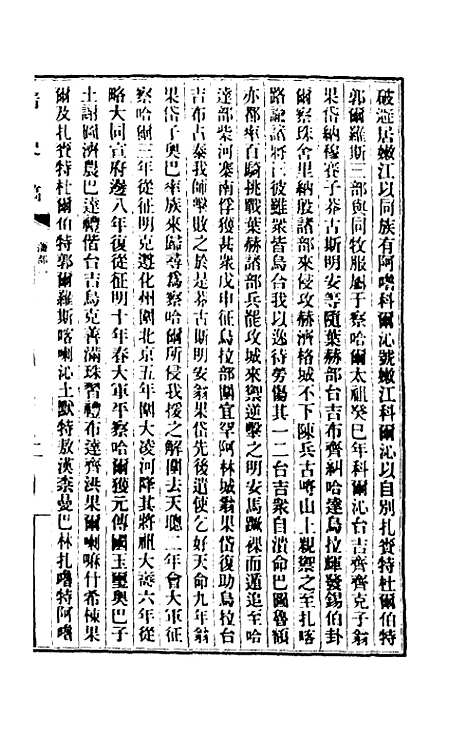 破避居嫩江以同族有阿嚕科爾沁號嫩江科爾沁以自別扎賚特杜爾伯特
郭爾羅斯三部與同牧服屬于察哈爾太祖癸巳年科爾沁台吉齊齊克子翁
果岱納穆賽子莽古斯明安等隨葉赫部台吉布齊糾哈達烏拉輝發錫伯卦
爾察珠舍里納殷諸部來侵攻赫濟格城不下陳兵古哷山上親禦之至扎喀
路諭諸將曰彼雖衆皆烏合我以逸待勞傷其一二台吉衆自潰命巴圖魯額
亦都率百騎挑戰葉赫諸部兵罷攻城來禦逆擊之明安馬蹶裸而遁追至哈
達部柴河寨南俘獲甚衆戊申征烏拉部圍宜罕阿林城翁果岱復助烏拉台
吉布占泰我師擊敗之於是莽古斯明安翁果岱先後遣使乞好天命九年翁
果岱子奧巴率族來歸尋爲察哈爾所侵我援之解圍去天聰二年會大軍征
察哈爾三年從征明克遵化州圍北京五年圍大凌河降其將祖大壽六年從
略大同宣府邊八年復從征明十年春大軍平察哈爾獲元傳國玉璽奧巴子
土謝圖濟農巴達禮偕台吉烏克善滿珠習禮布達齊洪果爾喇嘛什希棟果
爾及扎賚特杜爾伯特郭爾羅斯喀喇沁土默特敖漢柰曼巴林扎嚕特阿嚕
清史稿
藩部一